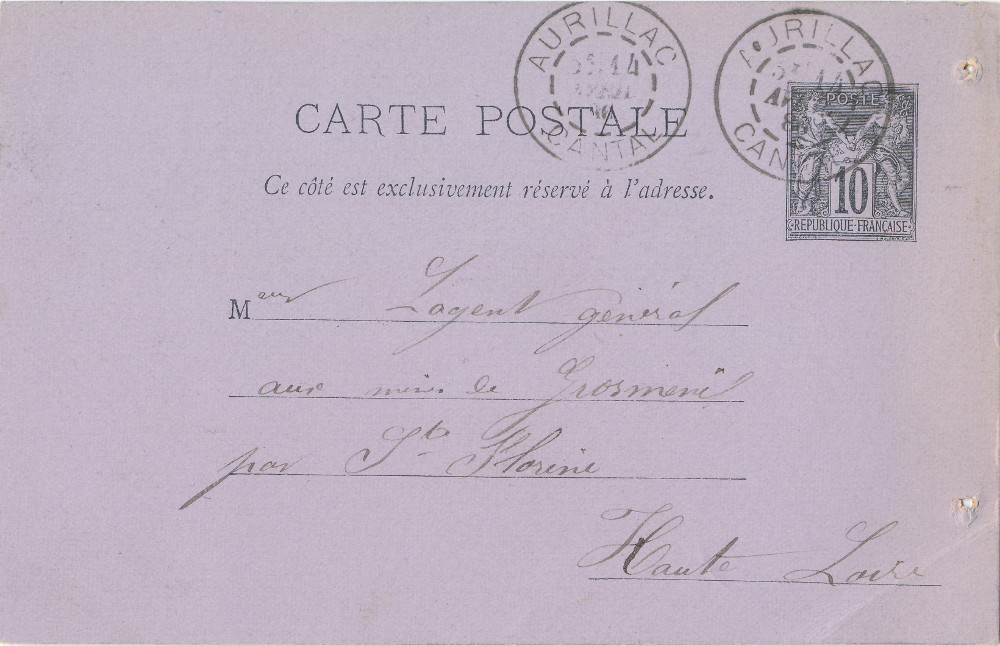 AURILLAC
14
CANTAL
AURILLAC
14
CANTAL
CARTE POSTALE
Ce côté est exclusivement réservé à l'adresse.
POSTE
10
REPUBLIQUE FRANÇAISE
Meur L'agent général
aux mines de Grosmenil
par Ste Florine
Haute Loire